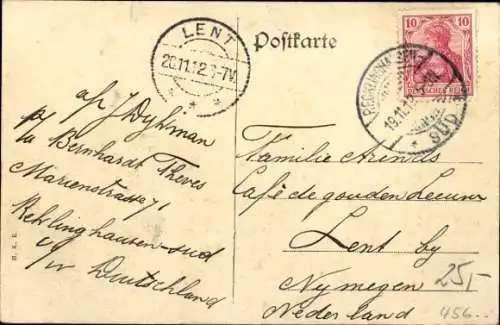 LENT
20.11.12. 5-7V.
Postkarte
10 10
DEUTSCHES REICH
RECKLINGHAUSEN
19.11.12
SÜD
afz J Dykman
p/
Bernhardt Theves
Marienstrasse 71
Reklinghausen-sud
i/w Deutschland
Familie Arends
Café de gouden Leeuw
Lent by
Nymegen
Nederland
25,-
456..